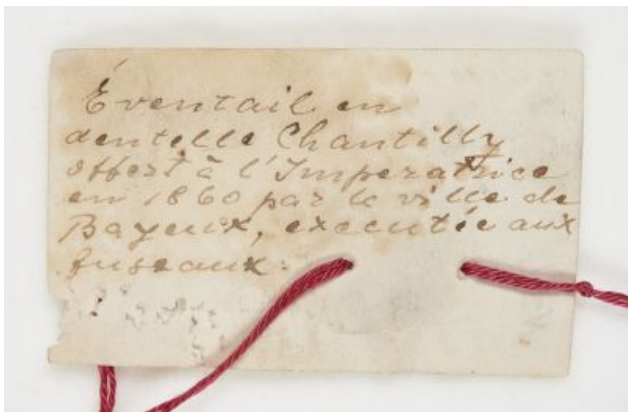 Éventail en
dentelle Chantilly
offert à l'Imperatrice
en 1860 par la ville de
Bayeux, executée aux
fuseaux.